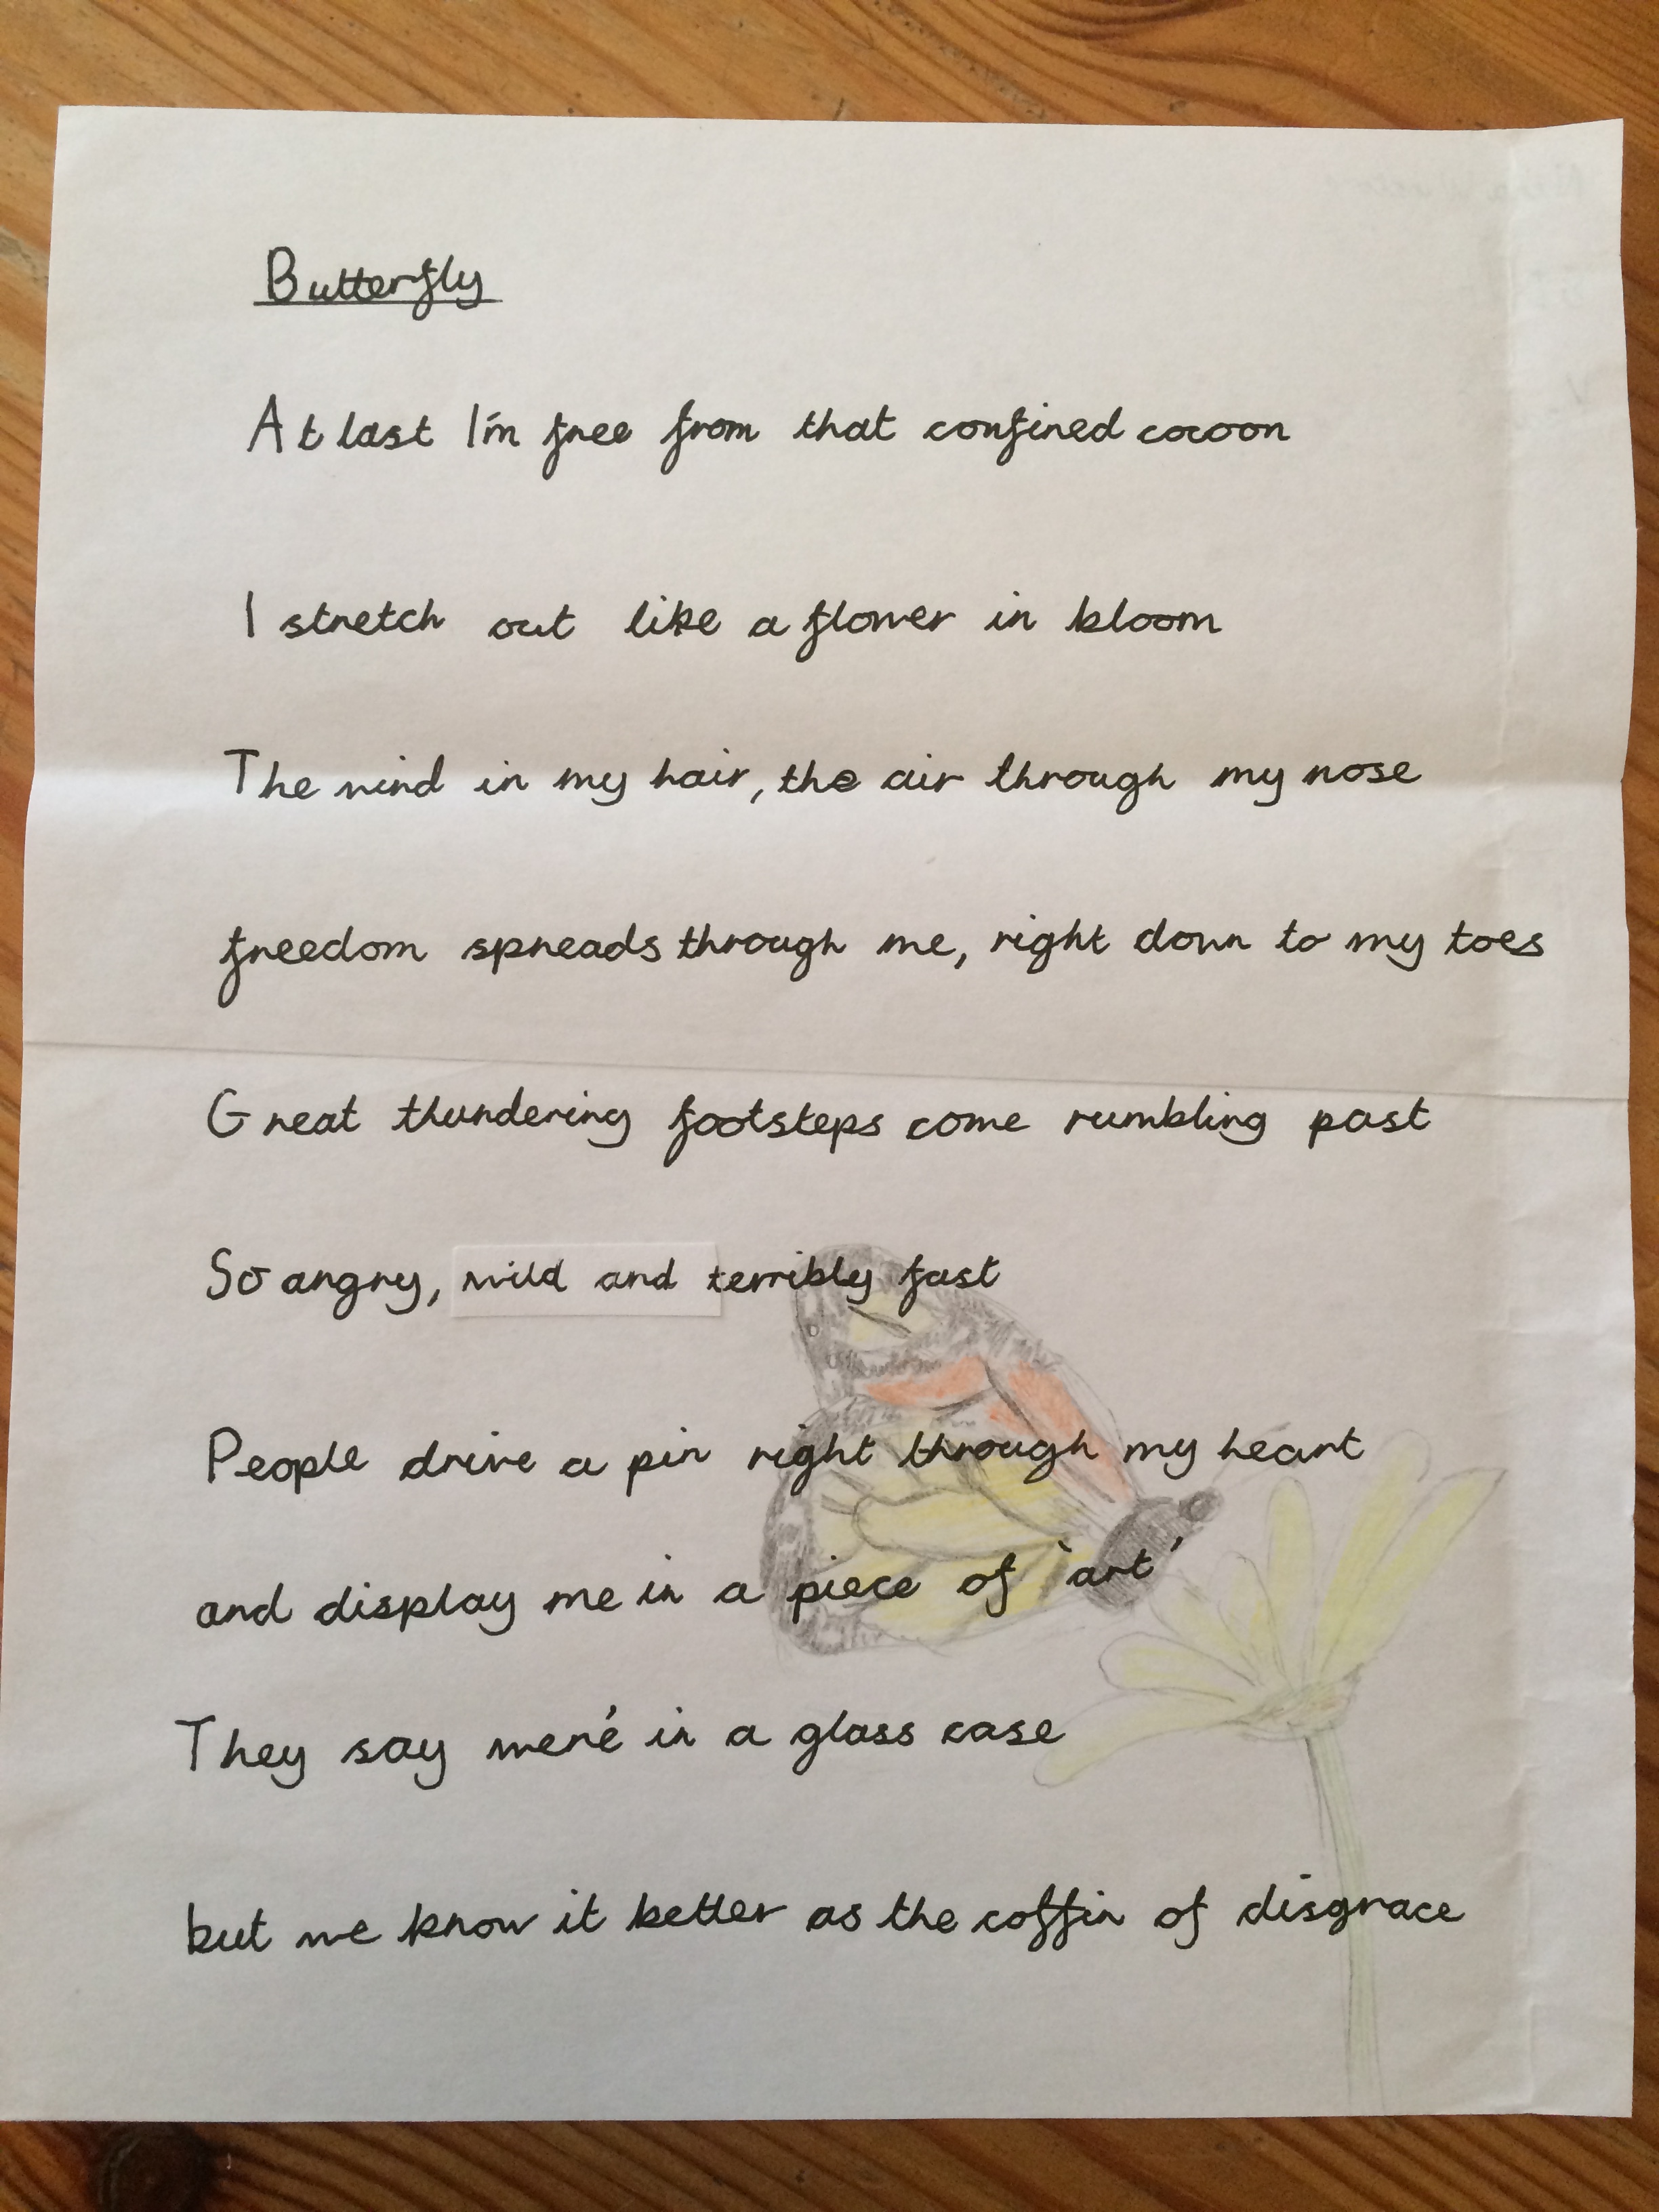 Butterfly
At last I'm free from that confined cocoon
I stretch out like a flower in bloom
The wind in my hair, the air through my nose
freedom spreads through me, right down to my toes
Great thundering footsteps come rumbling past
So angry, wild and terribly fast
People drive a pin right through my heart
and display me in a piece of 'art'
They say were' in a glass case
but we know it better as the coffin of disgrace